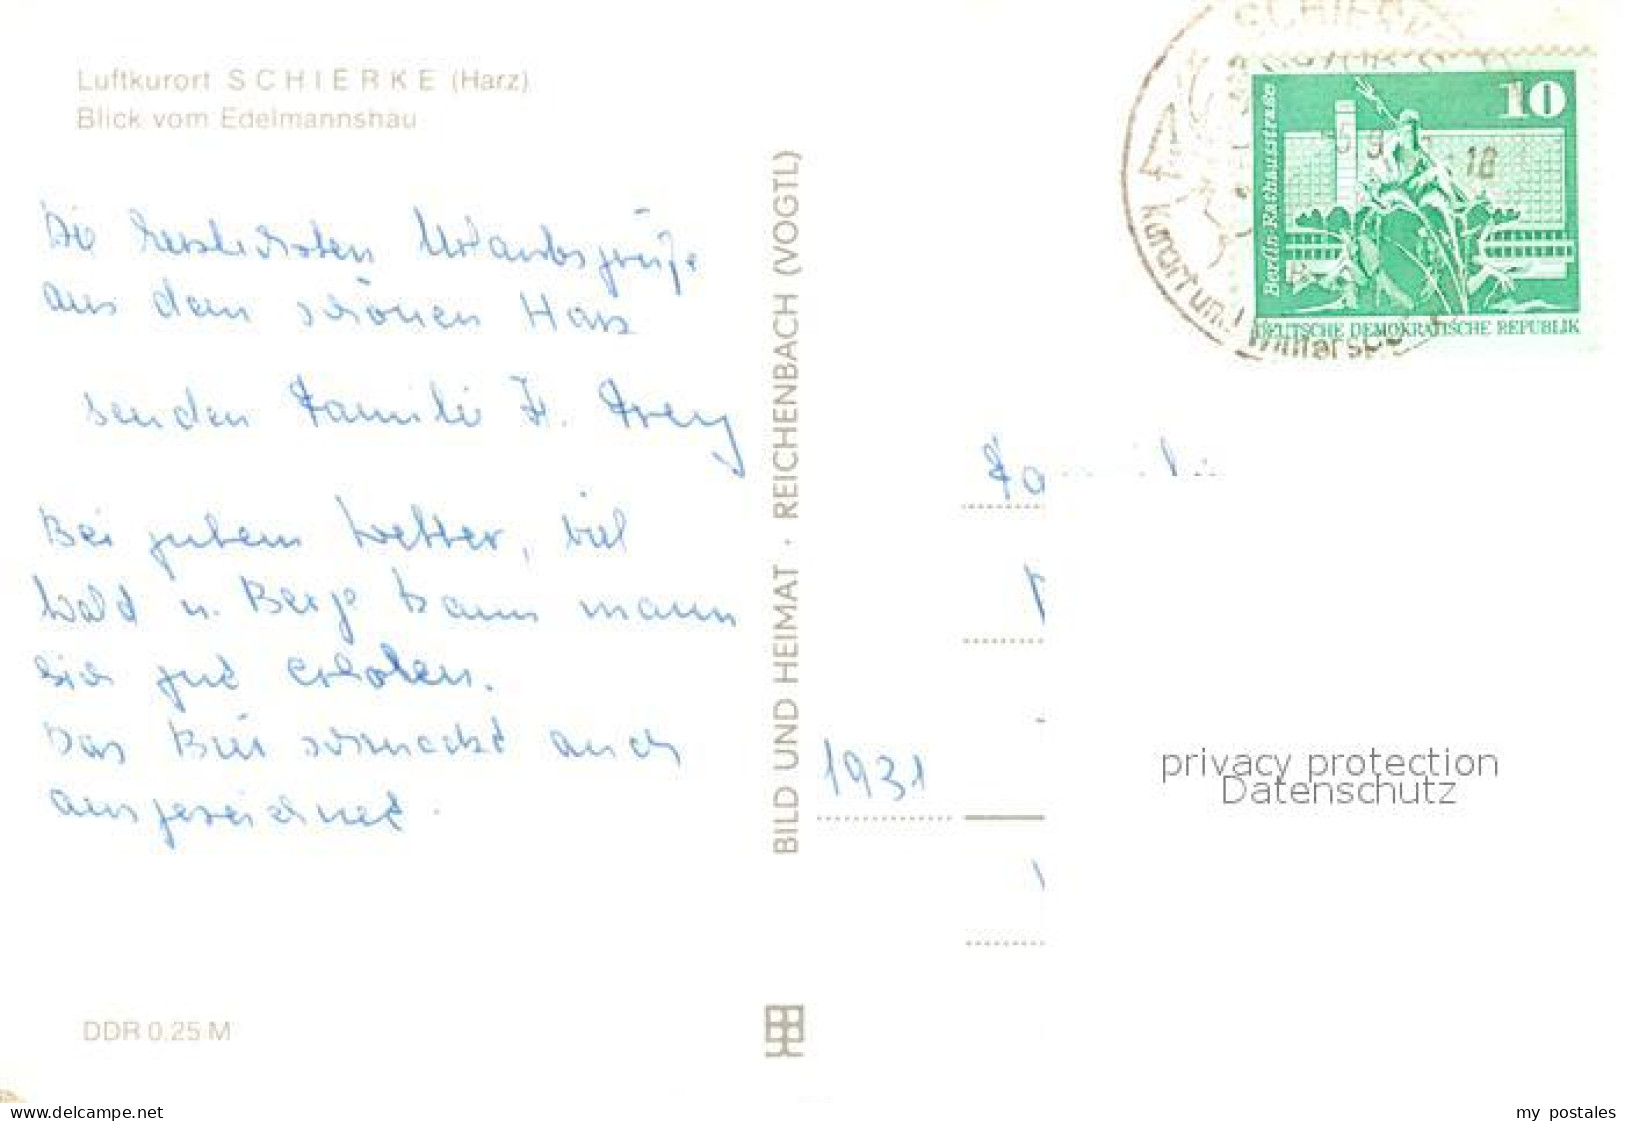 Luftkurort SCHIERKE (Harz)
Blick vom Edelmannshau
Die herzlichsten Urlaubsgrüße
aus dem schönen Harz
senden Familie H. Frey
Bei gutem Wetter, viel
Wald u. Berge kann mann
sich gut erholen.
Das Bier schmeckt auch
ausgezeichnet.
DDR 0,25 M
BILD UND HEIMAT · REICHENBACH (VOGTL)
SCHIERKE
Kurort und Winterspo
18
10
Berlin-Rathausstraße
DEUTSCHE DEMOKRATISCHE REPUBLIK
1931
privacy protection
Datenschutz
www.delcampe.net
my_postales